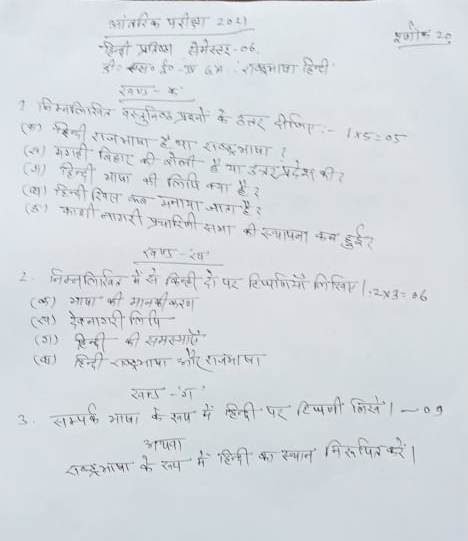 आंतरिक परीक्षा 2021
पूर्णांक 20
हिन्दी प्रतिष्ठा सेमेस्टर - 06
डी० एस० ई० - IV GM : राष्ट्रभाषा हिन्दी
खण्ड - 'क'
1. निम्नलिखित वस्तुनिष्ठ प्रश्नों के उत्तर दीजिए :- 1x5=05
(क) हिन्दी राजभाषा है या राष्ट्रभाषा ?
(ख) मगही बिहार की बोली है या उत्तरप्रदेश की ?
(ग) हिन्दी भाषा की लिपि क्या है ?
(घ) हिन्दी दिवस कब मनाया जाता है ?
(ङ) काशी नागरी प्रचारिणी सभा की स्थापना कब हुई ?
खण्ड - 'ख'
2. निम्नलिखित में से किन्हीं दो पर टिप्पणियाँ लिखिए । 2x3=06
(क) भाषा की मानकीकरण
(ख) देवनागरी लिपि
(ग) हिन्दी की समस्याएँ
(घ) हिन्दी राष्ट्रभाषा और राजभाषा
खण्ड - 'ग'
3. सम्पर्क भाषा के रूप में हिन्दी पर टिप्पणी लिखें । - 09
अथवा
राष्ट्रभाषा के रूप में हिन्दी का स्थान निरूपित करें ।